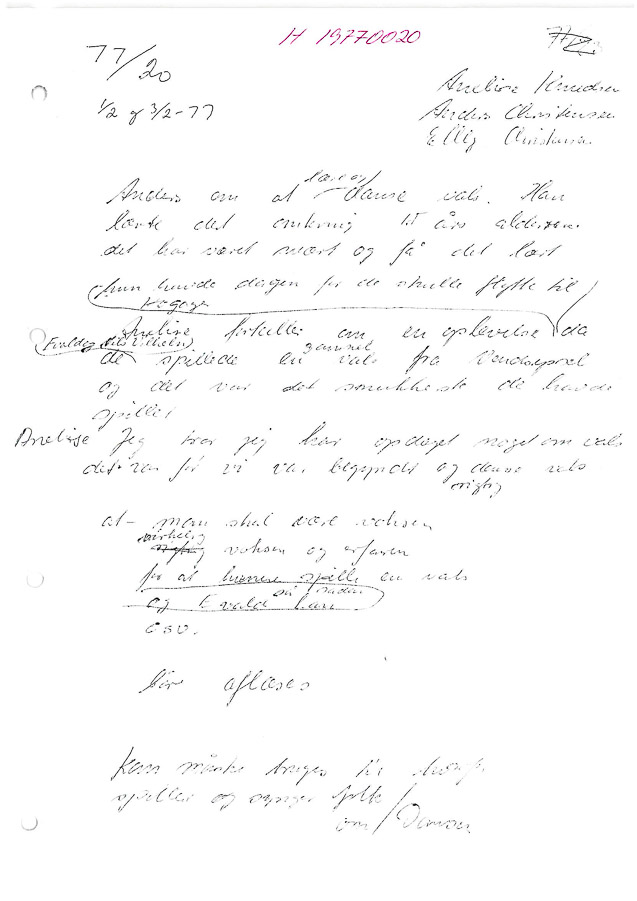 H 19770020
77/20
1/2 og 3/2-77
Anelise Knudsen
Anders Christensen
Elly Christensen
lære og
Anders om at danse vals. Han
lærte det omkring 15 års alderen.
det har været svært og få det lært
hun havde dagen før de skulle flytte til
Anelise fortæller om en oplevelse da
gammel
de spillede en vals fra Vendsyssel
og det var det smukkeste de havde
spillet
Anelise Jeg tror jeg har opdaget noget om vals
det var før vi var begyndt og danse vals
rigtig
at - man skal være voksen
virkelig
rigtig voksen og erfaren
for at kunne spille en vals
og
osv.
bør aflæses
kan måske bruges til
spiller og synger folk
om / Dansen